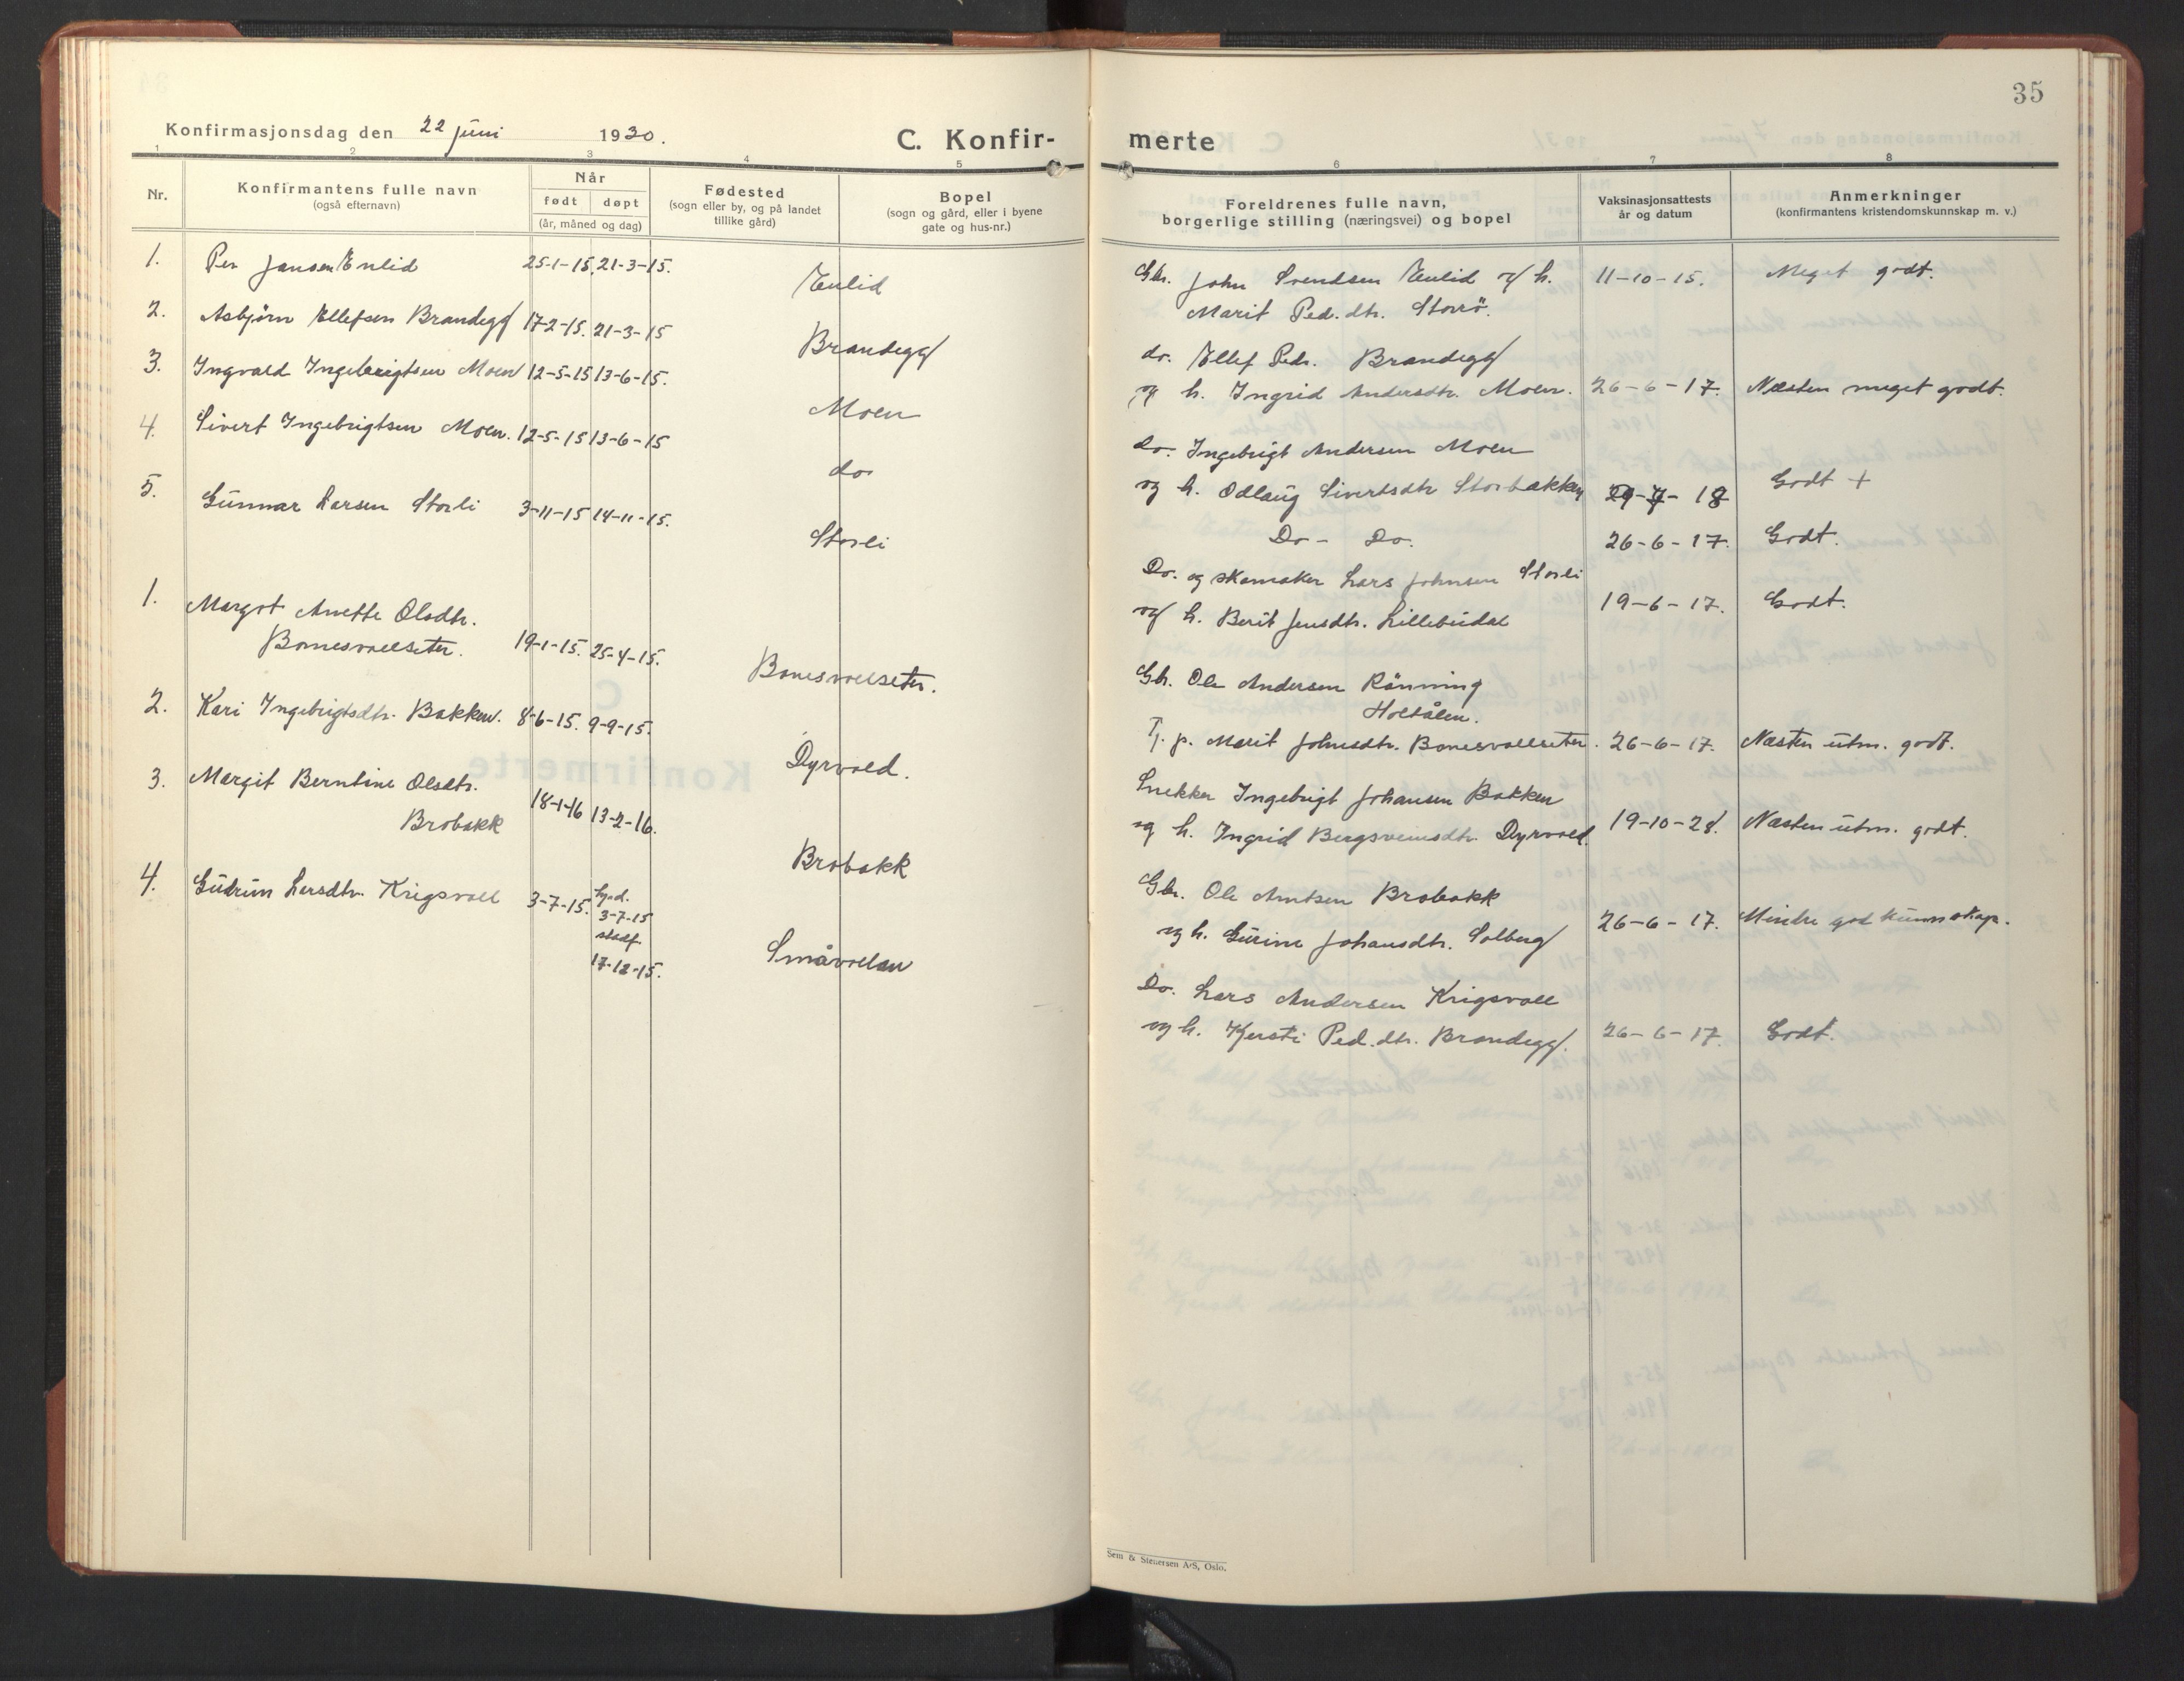 35
Konfirmasjonsdag den 22 juni 1930.
C. Konfir-
merte
1 2 3 4 5
Nr.
Konfirmantens fulle navn
(også efternavn)
Når
født døpt
(år, måned og dag)
Fødested
(sogn eller by, og på landet
tillike gård)
Bopel
(sogn og gård, eller i byene
gate og hus-nr.)
6 7 8
Foreldrenes fulle navn,
borgerlige stilling (næringsvei) og bopel
Vaksinasjonsattests
år og datum
Anmerkninger
(konfirmantens kristendomskunnskap m. v.)
1. Per Jansen Enlid 25-1-15. 21-3-15. Enlid
2. Asbjørn Ellefsen Brandegg 17-2-15. 21-3-15 Brandegg
3. Ingvald Ingebrigtsen Moen 12-5-15 13-6-15. Moen
4. Sivert Ingebrigtsen Moen. 12-5-15 13-6-15 do
5. Gunnar Larsen Storli 3-11-15 14-11-15. Storli
1. Margot Anette Olsdtr.
Bonesvollseter. 19-1-15. 25-4-15. Bonesvollseter.
2. Kari Ingebrigtsdtr. Bakken. 8-6-15. 9-9-15. Dyrvold.
3. Margit Berntine Olsdtr.
Brobakk 18-1-16 13-2-16. Brobakk
4. Gudrun Larsdtr. Krigsvoll 3-7-15. hj.d.
3-7-15
stadf.
17-12-15. Småvollan
Gbr. John Svendsen Enlid og h. 11-10-15. Meget godt.
Marit Ped.dtr. Storrö.
do. Ellef Peds. Brandegg
og h. Ingrid Andersdtr. Moen. 26-6-17. Næsten meget godt.
do. Ingebrigt Andersen Moen
og h. Odlaug Sivertsdtr Storbakken 29-7-18 Godt +
Do - Do. 26-6-17. Godt.
Do. og skomaker Lars Johnsen Storli
og h. Berit Jensdtr. Lillebudal 19-6-17. Godt.
Gbr. Ole Andersen Rönning
Holtålen.
Tj. p. Marit Johnsdtr. Bonesvollseter. 26-6-17. Næsten utm. godt.
Snekker Ingebrigt Johansen Bakken
og h. Ingrid Bergsveinsdtr. Dyrvold. 19-10-28. Næsten utm. godt.
Gbr. Ole Arntsen Brobakk
og h. Gurine Johansdtr. Solberg 26-6-17. Mindre god kunnskap.
Do. Lars Andersen Krigsvoll
og h. Kjersti Ped.dtr. Brandegg. 26-6-17. Godt.
Sem & Stenersen A/S, Oslo.